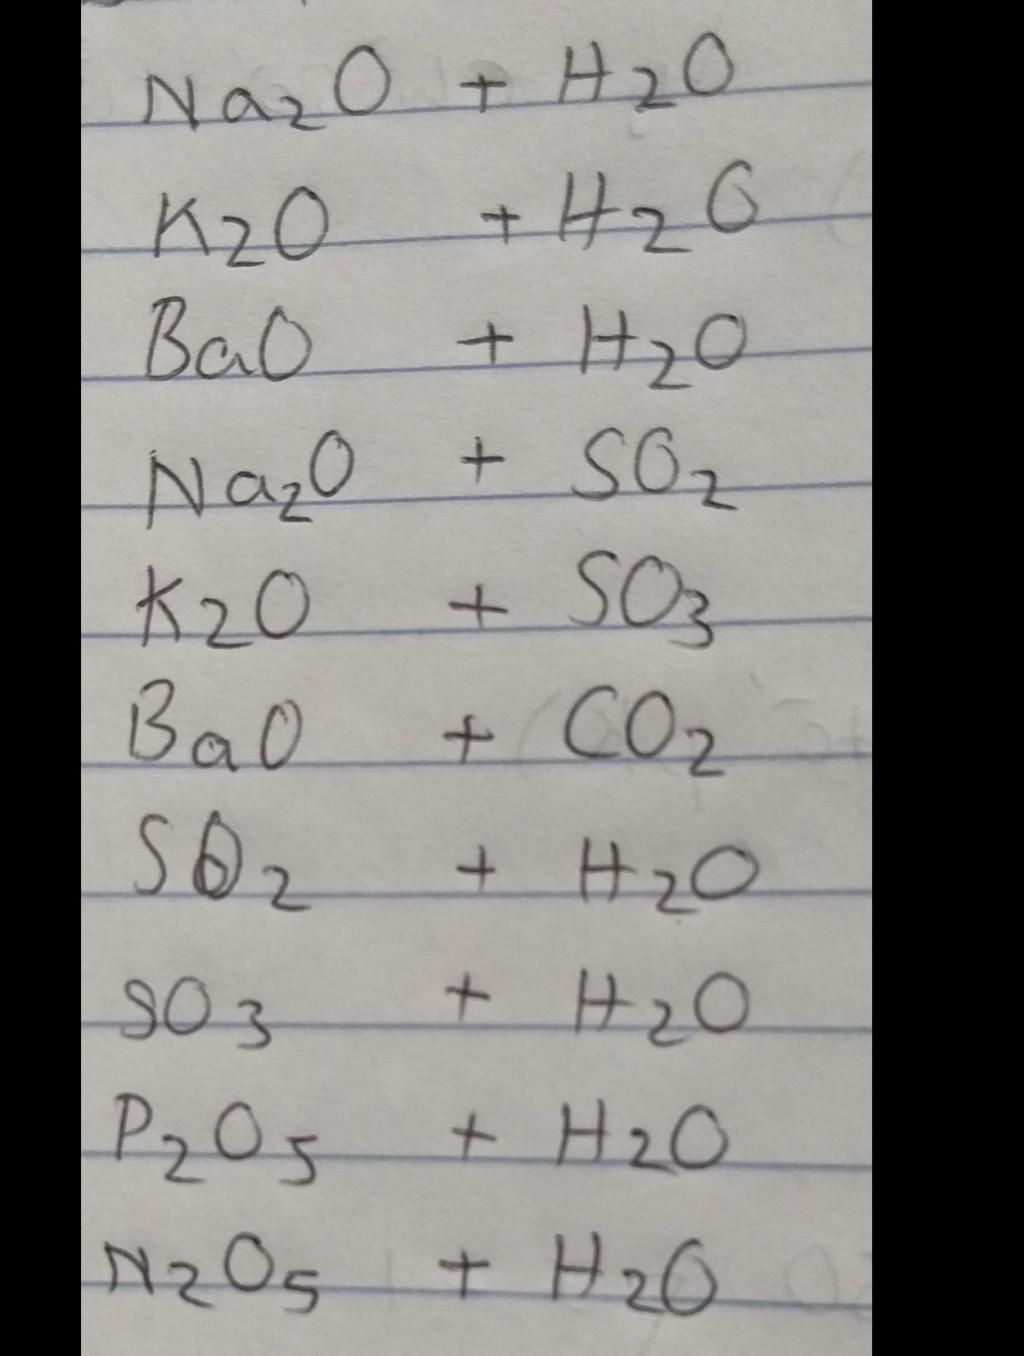 Na₂O + H₂O
K₂O + H₂O
BaO + H₂O
Na₂O + SO₂
K₂O + SO₃
BaO + CO₂
SO₂ + H₂O
SO₃ + H₂O
P₂O₅ + H₂O
N₂O₅ + H₂O